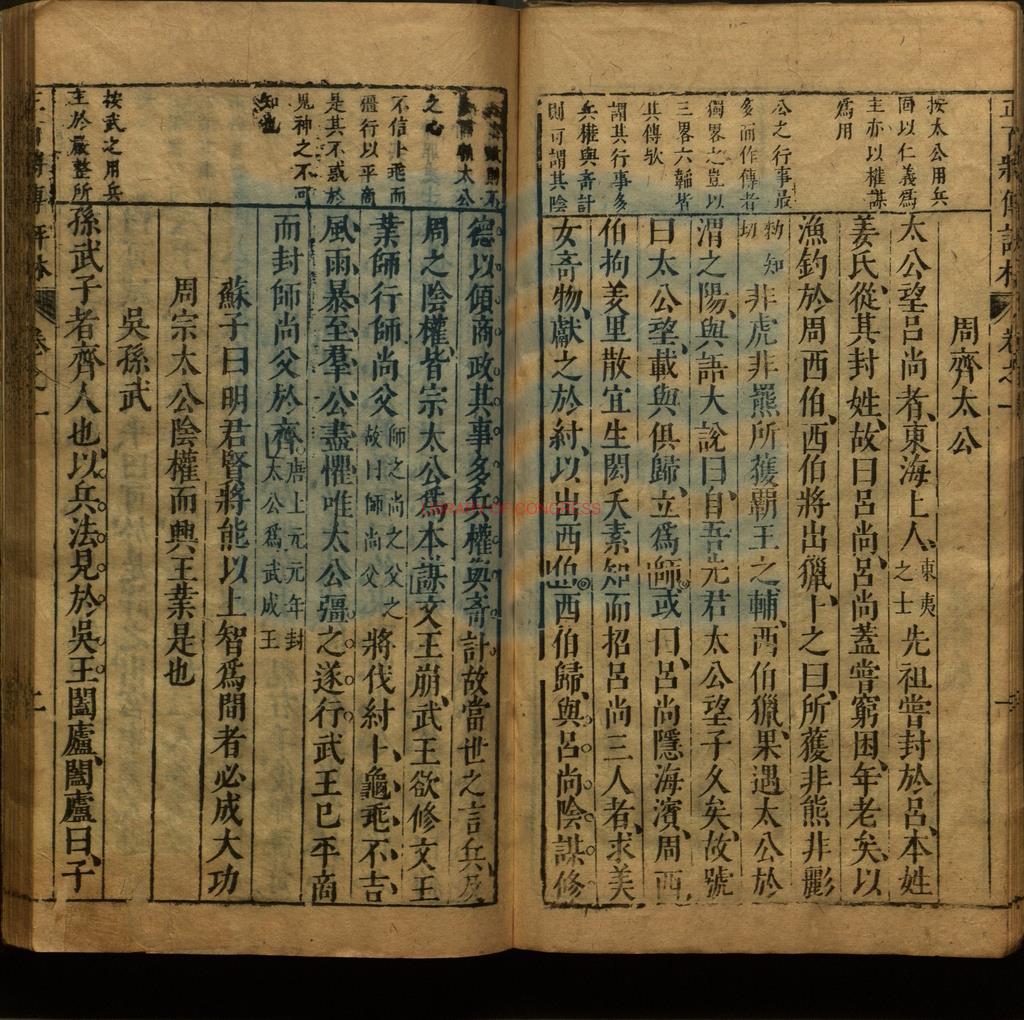 周齊太公
太公望呂尚者東海上人東夷之士先祖嘗封於呂本姓
姜氏從其封姓故曰呂尚呂尚蓋嘗窮困年老矣以
漁釣於周西伯西伯將出獵卜之曰所獲非熊非彲
勑知切非虎非羆所獲霸王之輔西伯獵果遇太公於
渭之陽與語大說曰自吾先君太公望子久矣故號
曰太公望載與俱歸立爲師或曰呂尚隱海濱周西
伯拘羑里散宜生閎夭素知而招呂尚三人者求美
女奇物獻之於紂以出西伯西伯歸與呂尚陰謀修
按太公用兵
同以仁義爲
主亦以權謀
爲用
公之行事最
多而作傳者
獨畧之豈以
三畧六韜皆
其傳歟
謂其行事多
兵權與奇計
則可謂其陰
德以傾商政其事多兵權與奇計故當世之言兵及
周之陰權皆宗太公爲本謀文王崩武王欲修文王
業師行師尚父師之尚之父之故曰師尚父將伐紂卜龜兆不吉
風雨暴至羣公盡懼唯太公彊之遂行武王已平商
而封師尚父於齊唐上元元年封太公爲武成王
蘇子曰明君賢將能以上智爲間者必成大功
周宗太公陰權而興王業是也
吳孫武
孫武子者齊人也以兵法見於吳王闔廬闔廬曰子
太公
之心
不信卜兆而
彊行以平商
是其不惑於
鬼神之不可
知也
按武之用兵
主於嚴整所
卷之一
LIBRARY OF CONGRESS